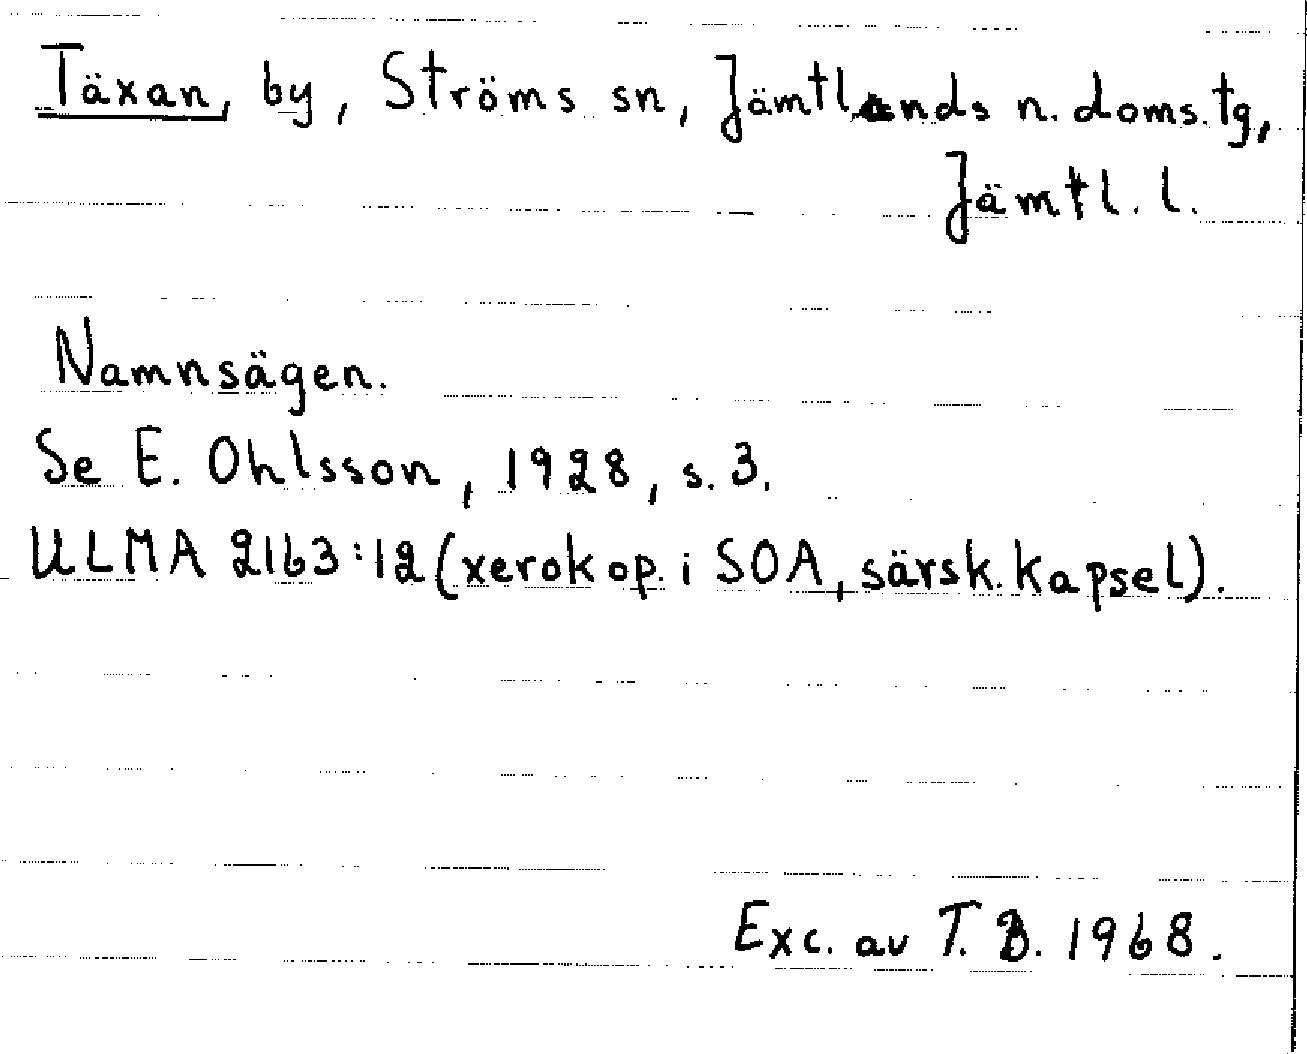 Täxan, by, Ströms sn, Jämtlands n. doms. tg,
Jämtl. l.
Namnsägen.
Se E. Ohlsson, 1928, s. 3.
ULMA 2163:12 (xerokop. i SOA, särsk. kapsel).
Exc. av T. B. 1968.